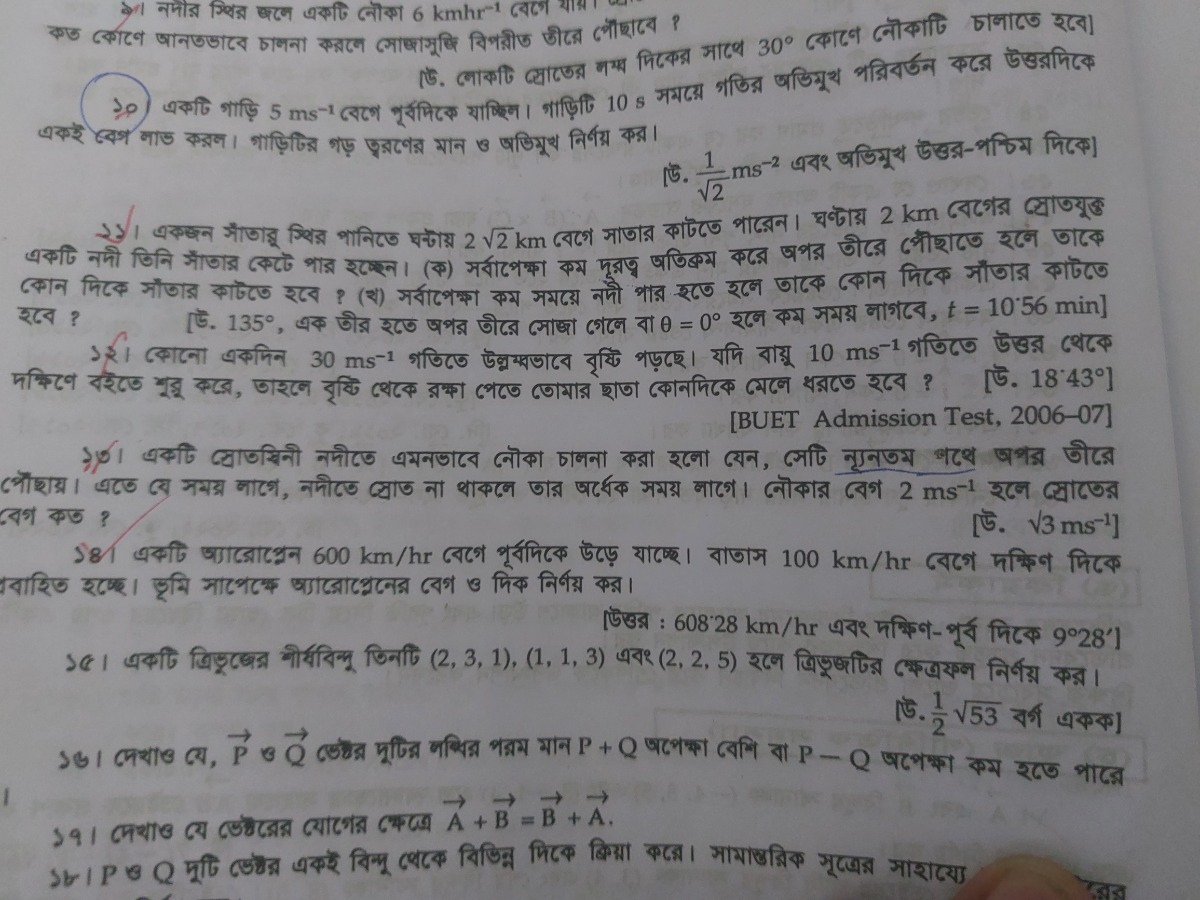 ৯। নদীর স্থির জলে একটি নৌকা 6 kmhr⁻¹ বেগে যায়।
কত কোণে আনতভাবে চালনা করলে সোজাসুজি বিপরীত তীরে পৌঁছাবে ?
[উ. নৌকটি স্রোতের লম্ব দিকের সাথে 30° কোণে নৌকাটি চালাতে হবে]
১০। একটি গাড়ি 5 ms⁻¹ বেগে পূর্বদিকে যাচ্ছিল। গাড়িটি 10 s সময়ে গতির অভিমুখ পরিবর্তন করে উত্তরদিকে
একই বেগ লাভ করল। গাড়িটির গড় ত্বরণের মান ও অভিমুখ নির্ণয় কর।
[উ. 1/√2 ms⁻² এবং অভিমুখ উত্তর-পশ্চিম দিকে]
১১। একজন সাঁতারু স্থির পানিতে ঘণ্টায় 2 √2 km বেগে সাতার কাটতে পারেন। ঘণ্টায় 2 km বেগের স্রোতযুক্ত
একটি নদী তিনি সাঁতার কেটে পার হচ্ছেন। (ক) সর্বাপেক্ষা কম দূরত্ব অতিক্রম করে অপর তীরে পৌঁছাতে হলে তাকে
কোন দিকে সাঁতার কাটতে হবে ? (খ) সর্বাপেক্ষা কম সময়ে নদী পার হতে হলে তাকে কোন দিকে সাঁতার কাটতে
হবে ? [উ. 135°, এক তীর হতে অপর তীরে সোজা গেলে বা θ = 0° হলে কম সময় লাগবে, t = 10·56 min]
১২। কোনো একদিন 30 ms⁻¹ গতিতে উল্লম্বভাবে বৃষ্টি পড়ছে। যদি বায়ু 10 ms⁻¹ গতিতে উত্তর থেকে
দক্ষিণে বইতে শুরু করে, তাহলে বৃষ্টি থেকে রক্ষা পেতে তোমার ছাতা কোনদিকে মেলে ধরতে হবে ? [উ. 18·43°]
[BUET Admission Test, 2006–07]
১৩। একটি স্রোতস্বিনী নদীতে এমনভাবে নৌকা চালনা করা হলো যেন, সেটি ন্যূনতম পথে অপর তীরে
পৌঁছায়। এতে যে সময় লাগে, নদীতে স্রোত না থাকলে তার অর্ধেক সময় লাগে। নৌকার বেগ 2 ms⁻¹ হলে স্রোতের
বেগ কত ? [উ. √3 ms⁻¹]
১৪। একটি অ্যারোপ্লেন 600 km/hr বেগে পূর্বদিকে উড়ে যাচ্ছে। বাতাস 100 km/hr বেগে দক্ষিণ দিকে
বাহিত হচ্ছে। ভূমি সাপেক্ষে অ্যারোপ্লেনের বেগ ও দিক নির্ণয় কর।
[উত্তর : 608·28 km/hr এবং দক্ষিণ-পূর্ব দিকে 9°28′]
১৫। একটি ত্রিভুজের শীর্ষবিন্দু তিনটি (2, 3, 1), (1, 1, 3) এবং (2, 2, 5) হলে ত্রিভুজটির ক্ষেত্রফল নির্ণয় কর।
[উ. 1/2 √53 বর্গ একক]
১৬। দেখাও যে, P⃗ ও Q⃗ ভেক্টর দুটির লব্ধির পরম মান P + Q অপেক্ষা বেশি বা P − Q অপেক্ষা কম হতে পারে
।
১৭। দেখাও যে ভেক্টরের যোগের ক্ষেত্রে A⃗ + B⃗ = B⃗ + A⃗.
১৮। P ও Q দুটি ভেক্টর একই বিন্দু থেকে বিভিন্ন দিকে ক্রিয়া করে। সামান্তরিক সূত্রের সাহায্যে